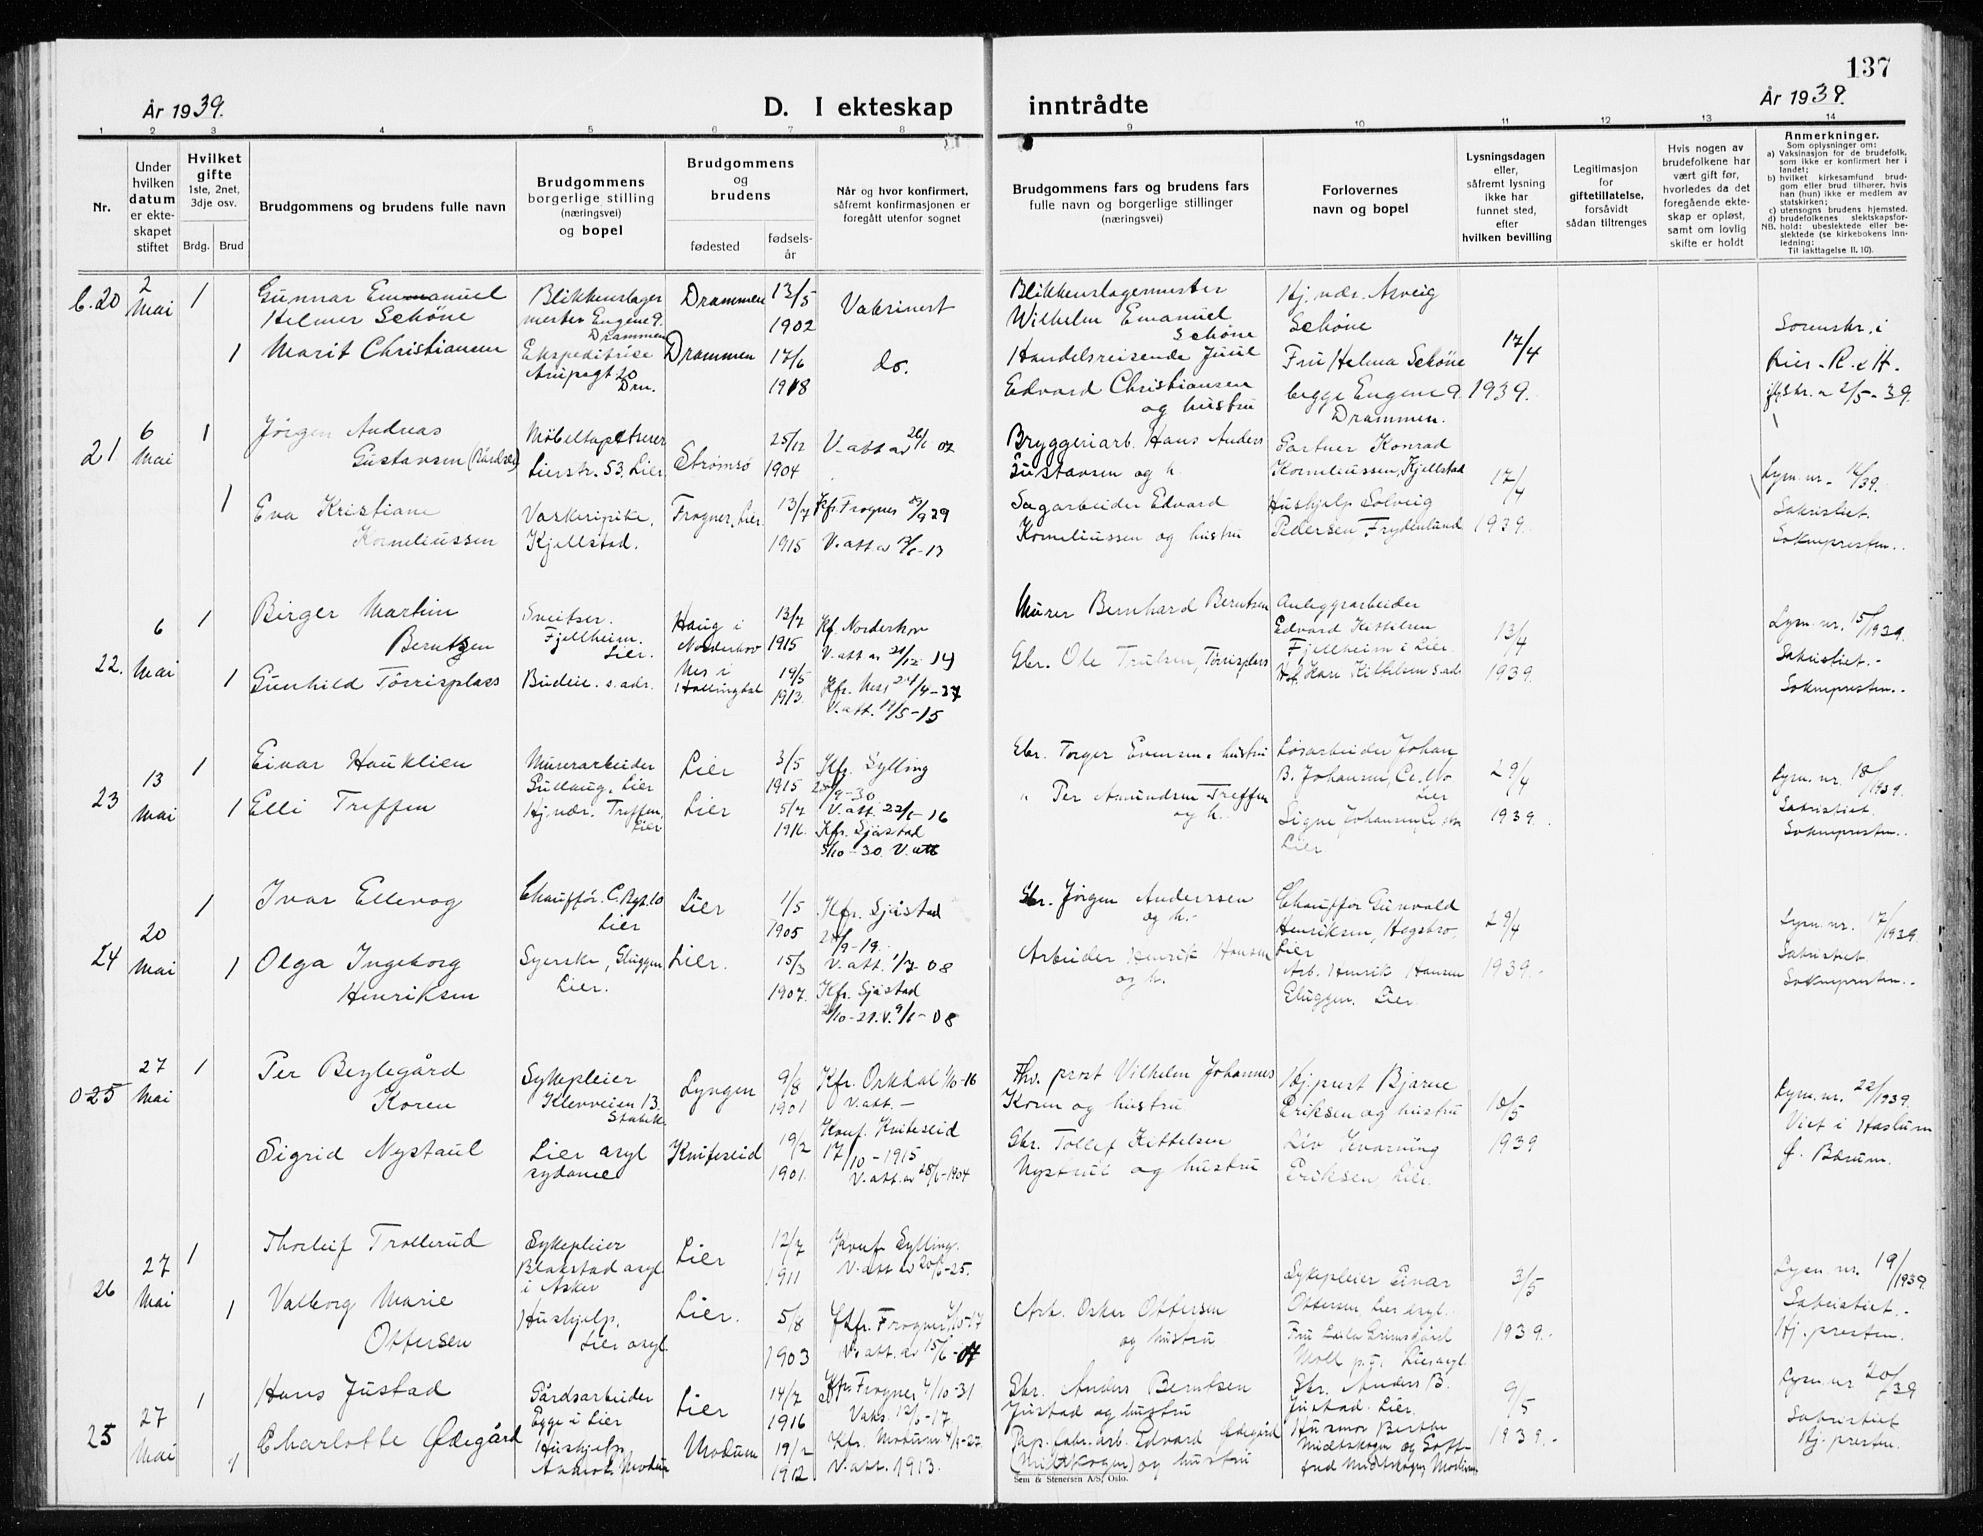 137
År 1939.
D. I ekteskap inntrådte
År 1939.
1 2 3 4 5 6 7 8 9 10 11 12 13 14
Nr.
Under hvilken datum er ekteskapet stiftet
Hvilket gifte
1ste, 2net, 3dje osv.
Brdg. Brud
Brudgommens og brudens fulle navn
Brudgommens borgerlige stilling (næringsvei) og bopel
Brudgommens og brudens
fødested
fødselsår
Når og hvor konfirmert, såfremt konfirmasjonen er foregått utenfor sognet
Brudgommens fars og brudens fars fulle navn og borgerlige stillinger (næringsvei)
Forlovernes navn og bopel
Lysningsdagen eller, såfremt lysning ikke har funnet sted, efter hvilken bevilling
Legitimasjon for giftetillatelse, forsåvidt sådan tiltrenges
Hvis nogen av brudefolkene har vært gift før, hvorledes da det foregående ekteskap er opløst, samt om lovlig skifte er holdt
Anmerkninger.
Som oplysninger om:
a) Vaksinasjon for de brudefolk, som ikke er konfirmert her i landet;
b) hvilket kirkesamfund brudgom eller brud tilhører, hvis han (hun) ikke er medlem av statskirken;
c) utensogns brudens hjemsted.
d) brudefolkenes slektskapsforhold: ubeslektede eller beslektede (se kirkebokens innledning:
NB. Til iakttagelse II. 10).
20 2 Mai 1
Gunnar Emmanuel
Helmer Schöne
Blikkenslager
mester Engene 9.
Drammen
Drammen 13/5
1902
Vaksinert
Blikkenslagermester
Wilhelm Emanuel
Schöne
Hj. vær. Asveig
Schöne
1 Marit Christiansen
Ekspeditrise
Drm.
Drammen 17/6
1918
do.
Handelsreisende Juul
Edvard Christiansen
og hustru
Fru Helma Schöne
begge Engene 9.
Drammen.
17/4
1939.
Sorenskr. i
2/5-39.
21 6 Mai 1
Jörgen Andreas
Gustavsen
Möbeltapetserer
Lierstr. 53, Lier
Strömsö 25/12
1904
V-att av 26/6 07
Bryggeriarb. Hans Anders
Gustavsen og h.
Gartner Konrad
Korneliussen, Kjellstad
1 Eva Kristiane
Korneliussen
Vaskeripike,
Kjellstad.
Frogner, Lier. 13/7
1915
Kfr. Frogner /9 29
V.att av
Sagarbeider Edvard
Korneliussen og hustru
Hushjelp Solveig
Pedersen Frydenlund
17/4
1939.
Lysn. nr. 14/39.
Sakristiet.
Soknepresten..
22. 6 Mai 1
Birger Martin
Berntzen
Sveitser.
Fjellheim.
Lier.
Haug i
Norderhov
13/7
1915
Kf. Norderhov
V.att av 21/12 14
Murer Bernhard Berntsen
Anleggsarbeider
Edvard Kittilsen
Fjellheim i Lier.
1 Gunhild Törrisplass
Budeie. s. adr.
Nes i
Hallingdal
19/5
1913.
Kfr. Nes 24/4-27
V.att. 19/5-15
Gbr. Ole Trulsen, Törrisplass
Kari Kittilsen s. adr.
13/4
1939.
Lysn. nr. 15/1939.
Sakristiet.-
Soknepresten..
23 13 Mai 1
Einar Hauklien
Murerarbeider
Gullaug, Lier
Lier 3/5
1915
Kfr. Sylling
/9-30
V.att. 22/6-16
Gbr. Torger Evensen o hustru
Lösarbeider Johan
B. Johansen,
Lier
1 Elli Treffen
Hj. vær. Treffen,
Lier
Lier 5/7
1916.
Kfr. Sjåstad
5/10-30. V.att
" Per Amundsen Treffen
og h.
Signe Johansen,
Lier
29/4
1939.
Lysn. nr. 18/1939.
Sakristiet.
Soknepresten..
24 20 Mai 1
Ivar Ellevog
Chauffør.
Lier
Lier 1/5
1905
Kfr. Sjåstad
/9-19.
V.att. 1/7-08
Gbr. Jörgen Anderssen
og h.-
Chauffør Gunvald
Henriksen, Hegsbro,
Lier
1 Olga Ingeborg
Henriksen
Syerske, Gluggen
Lier.
Lier. 15/3
1907.
Kfr. Sjåstad
/10-21. V. 9/6-08
Arbeider Henrik Hansen
og h.
Arb. Henrik Hansen
Gluggen. Lier.
29/4
1939.-
Lysn. nr. 17/1939.
Sakristiet.
Soknepresten..
025 27 Mai 1
Per Beylegård
Koren
Sykepleier
Klevveien 13.
Stabekk
Lyngen 9/8
1901
Kfr. Orkdal 1/10-16
V.att.-
Fhv. prost Vilhelm Johannes
Koren og hustru
Hj. prest Bjarne
Eriksen og hustru
Sigrid Nystaul
Lier asyl
sydame
Kviteseid 19/2
1901.
Konf. Kviteseid
17/10-1915
V.att. av 28/6-1904
Gbr. Tollef Kittelsen
Nystaul og hustru
Liv Kvarning
Eriksen, Lier.
10/5
1939
Lysn. nr. 22/1939.
Viet i Haslum
Bærum.
26 27 Mai 1
Thorleif Trollerud
Sykepleier
Blakstad asyl
i Asker
Lier 12/7
1911
Konf. Sylling.
V.att av 20/6-25.
Sykepleier Einar
Ottersen, Lier asyl.
1 Valborg Marie
Ottersen
Hushjelp.
Lier asyl.
Lier. 5/8
1903
Kfr. Frogner 7/10-17
V. att. av 15/6-07
Arb. Oskar Ottersen
og hustru
Fru Laila Grimsgård
Moll p.t. Lier asyl.
3/5
1939.-
Lysn. nr. 19/1939.
Sakristiet.-
Hj. presten.
25 27 Mai 1
Hans Justad
Gårdsarbeider
Egge i Lier
Lier 14/7
1916
Kfr. Frogner 4/10-31
Vaks. 12/6-17.
Gbr. Anders Berntsen
Justad og hustru
Gbr. Anders B.
Justad. Lier.
1 Charlotte Ødegård
Hushjelp
Åmot, Modum
Modum 19/2
1912
Kfr. Modum 4/9-27.
V.att. 1913.
Pap. fabr. arb. Edvard Ødegård
(Midtskogen) og hustru
Husmor Berthe
Midtskogen og Gott-
fred Midtskogen, Modum
9/5
1939.-
Lysn. nr 20/39
Sakristiet
Hj. presten.
Sem & Stenersen A/S, Oslo.